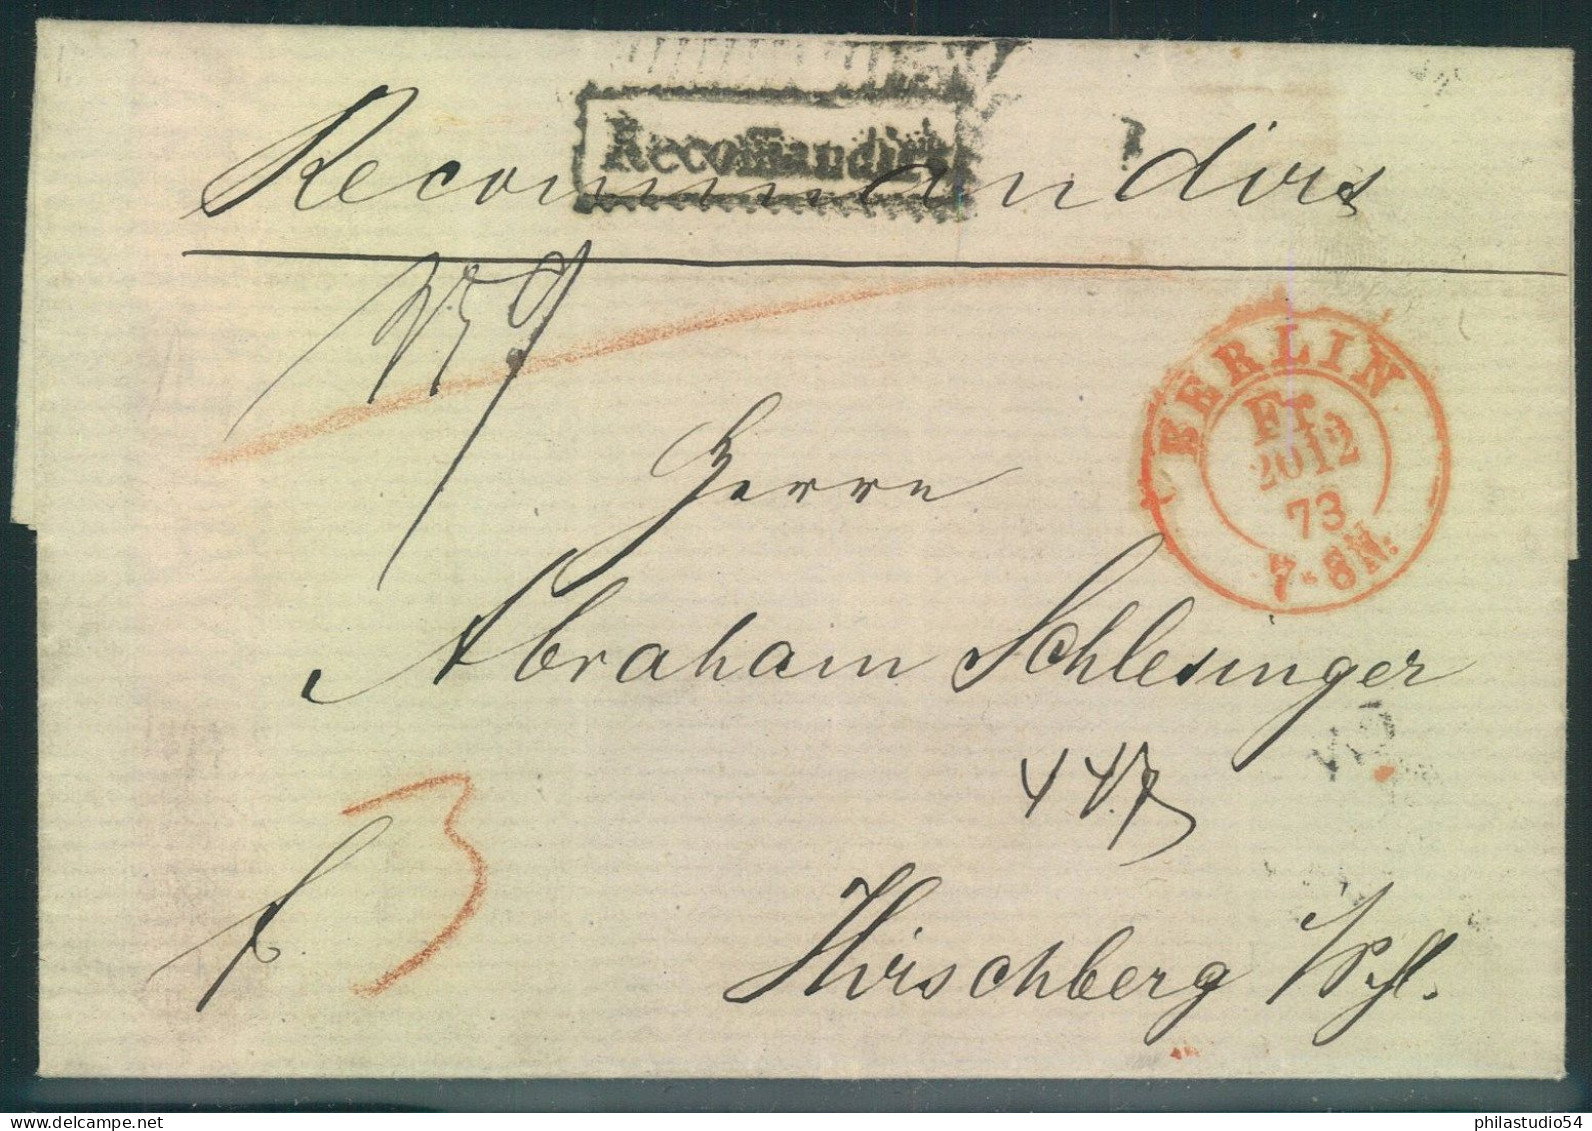 Recomandirt
Recommandirs
BERLIN
Fr.
20 12
73
7-8N.
Herrn
Abraham Schlesinger
447
3
Hirschberg /Schl.
philastudio54